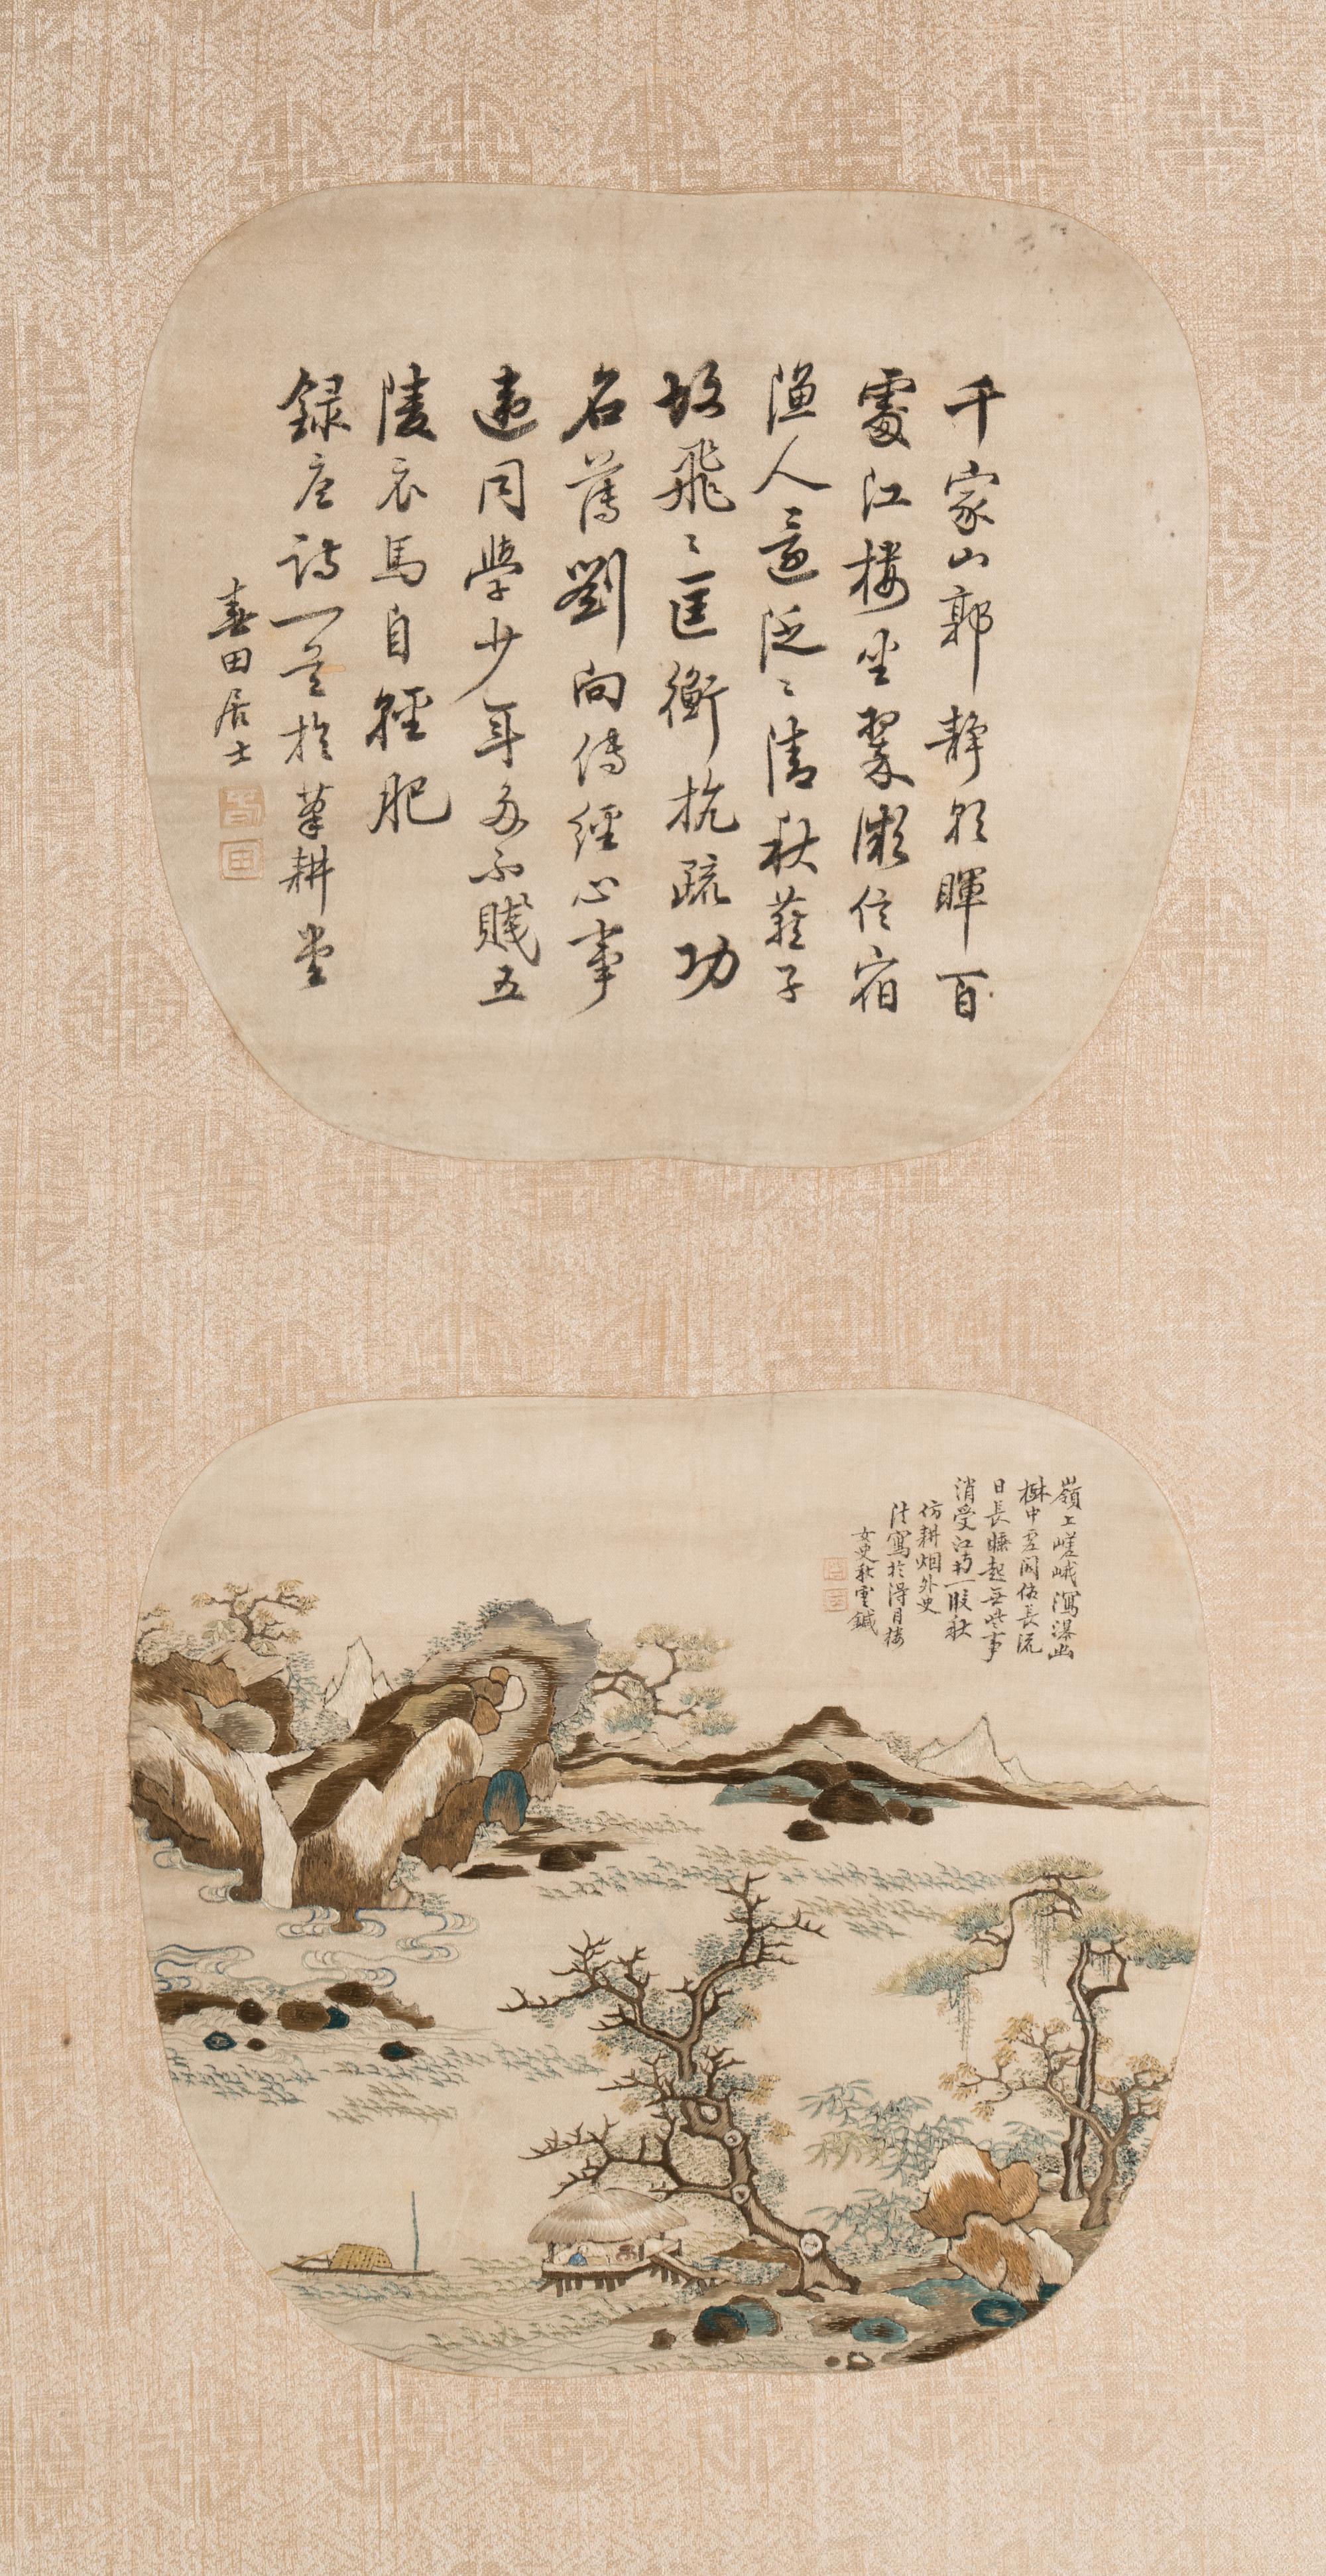 千家山郭靜朝暉百
處江樓坐翠微信宿
漁人還泛〻清秋燕子
故飛〻匡衡抗疏功
名薄劉向傳經心事
違同學少年多不賤五
陵衣馬自輕肥
録唐詩一首於筆耕堂
壽田居士
嶺上嵯峨瀉瀑幽
樹中虛閣傍長流
日長睡起無些事
消受江村一段秋
仿耕烟外史
法寫於得月樓
女史秋雲鍼